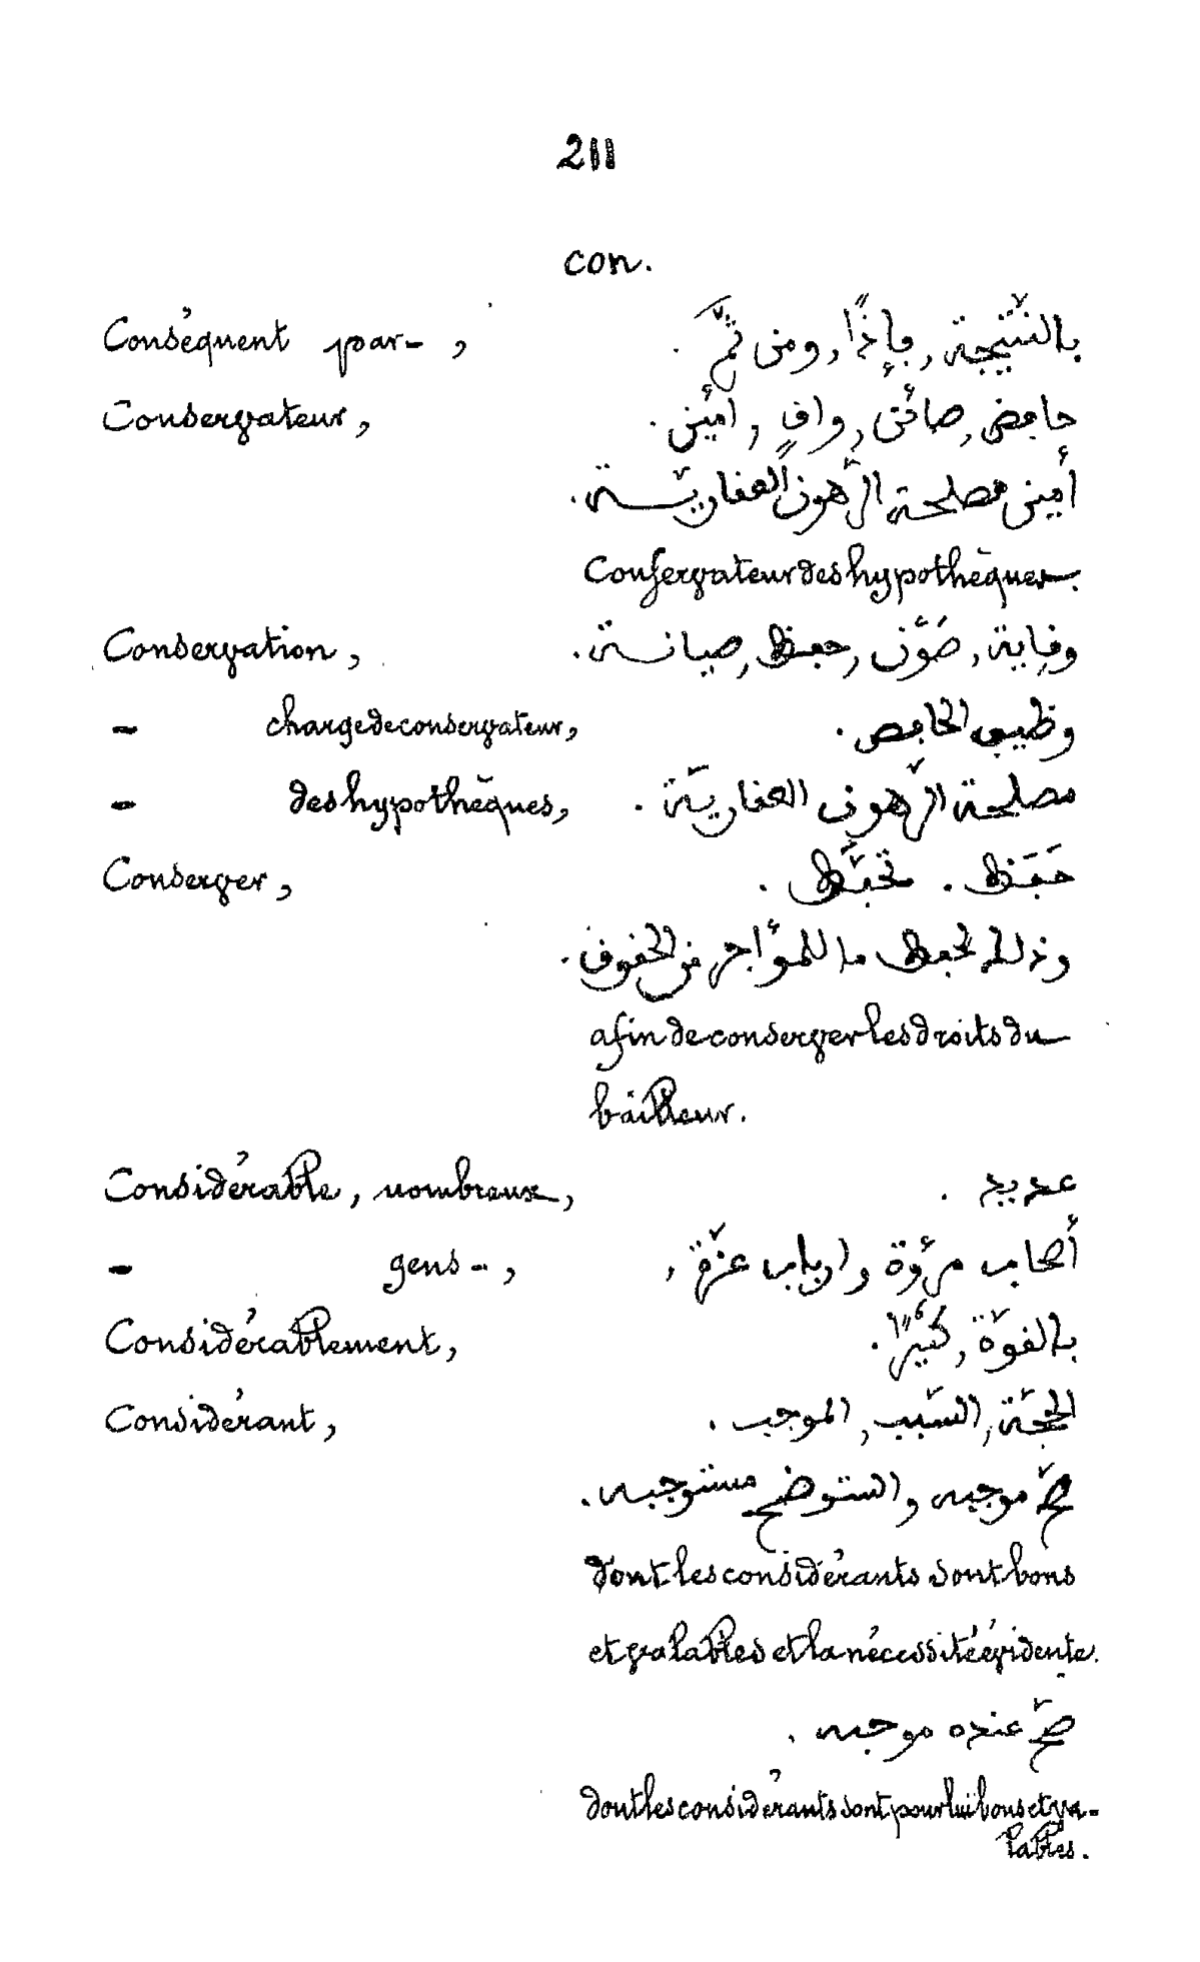 211
con.
Conséquent par-, بالنّتيجة, فإذًا, ومن ثمَّ.
Conservateur, حافظ, صائن, وافٍ, أمين.
أمين مصلحة الرّهون العقاريّة.
Conservateur des hypothèques.
Conservation, وقاية, صَوْن, حفظ, صيانة.
- charge de conservateur, وظيف الحافظ.
- des hypothèques, مصلحة الرّهون العقاريّة.
Conserver, حَفَظ. تحفَّظ.
وذلك لحفظ ما للمؤاجر من الحقوق.
afin de conserver les droits du
bailleur.
Considérable, nombreux, عديد.
- gens -, أصحاب مرؤة وارباب عزّة,
Considérablement, بالقوّة, كثيرًا.
Considérant, الحجّة, السّبب, الموجب.
صحّ موجبه واستوضح مستوجبه.
dont les considérants sont bons
et valables et la nécessité évidente.
صحّ عنده موجبه.
dont les considérants sont pour lui bons et va-
lables.